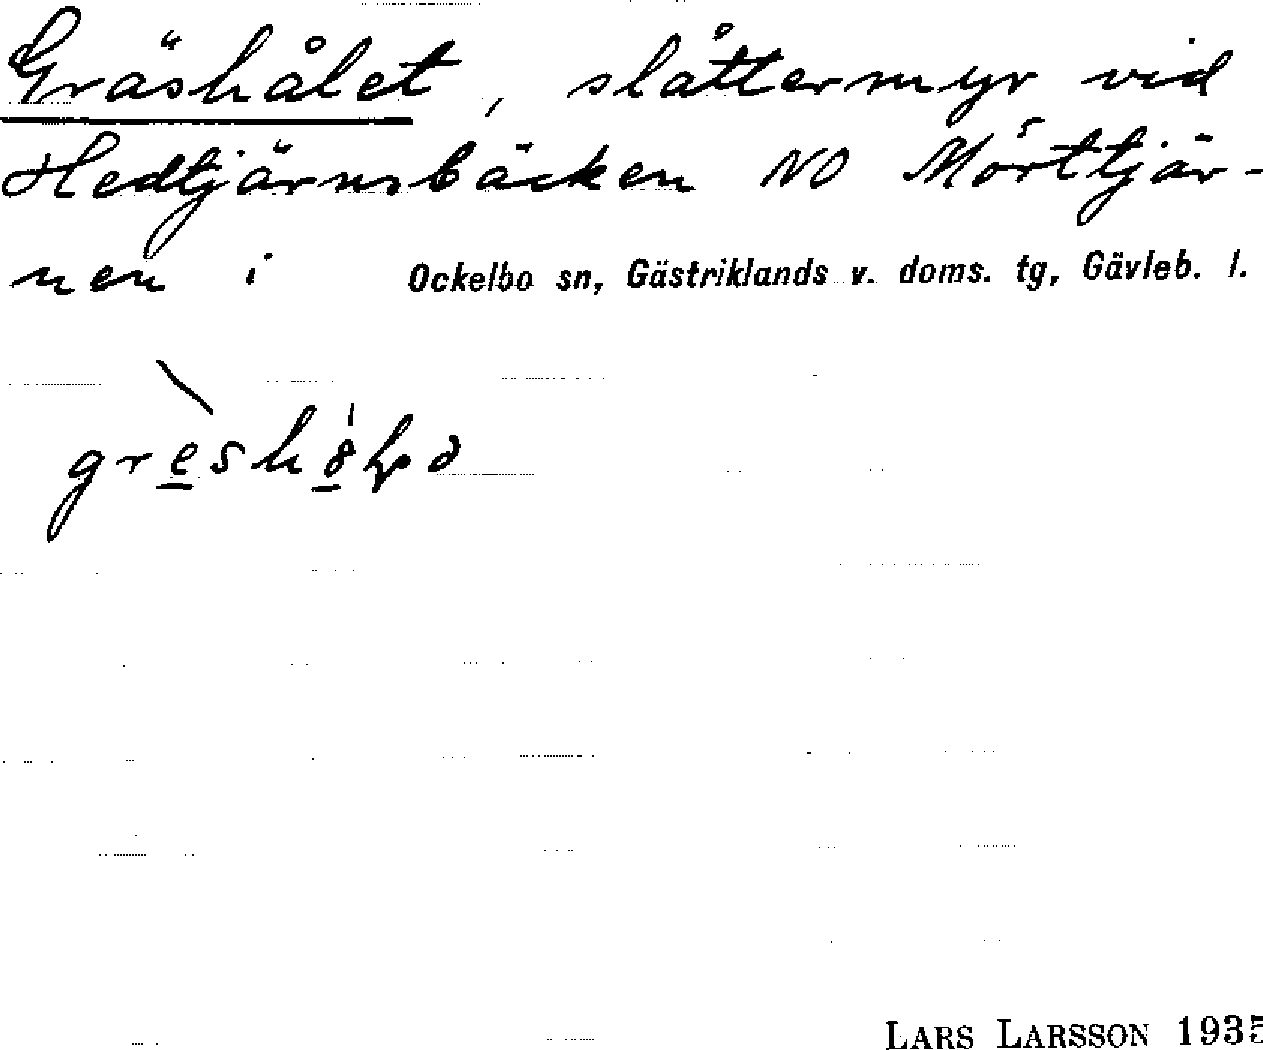 Gräshålet, slåttermyr vid
Hedtjärnsbäcken NO Mörttjär-
nen i Ockelbo sn, Gästriklands v. doms. tg, Gävleb. l.
LARS LARSSON 1935